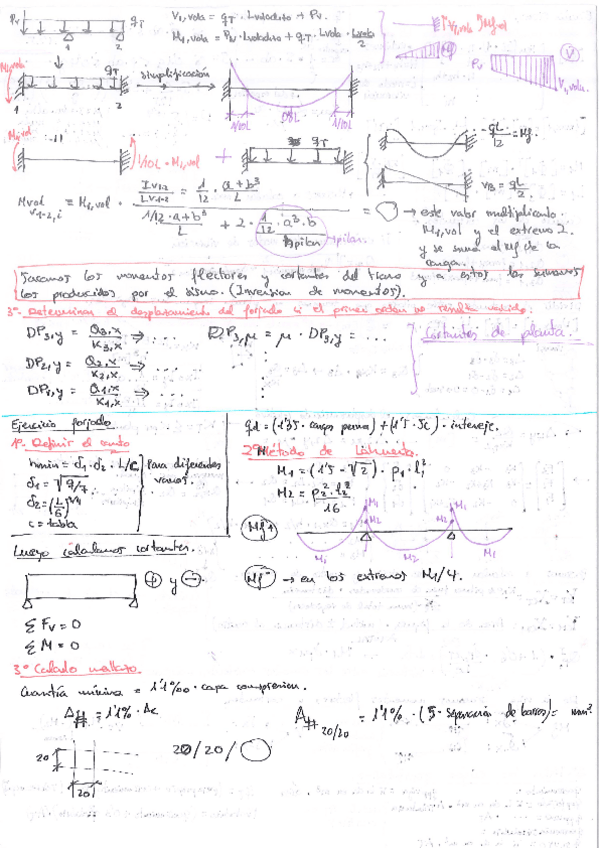 Pv qT V1,vola = qT · Lvoladizo + Pv.
M1,vola = Pv · Lvoladizo + qT · Lvola · Lvola/2
1 2
V1,vola
Pv V
V1,vola
M1,vola qT simplificación
1 2
1/10L 1/10L
M1,vol 1/10L · M1,vol + qT
-qL/12 = Mf.
VB = qL/2
Mvol v1-2,i = M1,vol · = 1/12 · a+b³/L
1/12 · a+b³/L + 2 · 1/12 · a³·b = → este valor multiplicando
M1,vol y el extremo 2.
y se suma el Mf de la
carga.
4pilar
Sacamos los momentos flectores y cortantes del tramo y a estos les sumamos
los producidos por el sismo. (Inversion de momentos).
3º- Determinar el desplazamiento del forjado si el primer orden no resulta válido:
DP3,y = Q3,x/K3,x → ... DP3,μ = μ · DP3,y = ... Cortantes de planta.
DP2,y = Q2,x/K2,x → ...
DP1,y = Q1,x/K1,x → ...
Ejercicio forjado
1º- Definir el canto
hmin = δ1 · δ2 · L/C Para diferentes
δ1 = √q/7 vanos.
δ2 = (L/6)^1/4
c = tabla
qd = (1'35 · carga perma) + (1'5 · Sc) · intereje.
2º Método de
M1 = (1'5 - √2) · P1 · l1²
M2 = P2² · l2²/16
M1 M1
M2 M2
Mf+
M1 M2 M1
Mf- → en los extremos M1/4.
Luego calculamos cortantes.
+ y -.
Σ Fv = 0
Σ M = 0
3º Calculo mallazo.
Cuantía mínima = 1'1‰ · capa compresion.
A# = 1'1‰ · Ac
A# 20/20 = 1'1‰ · (5 · separación de barras) = mm²
20 20/20/
20